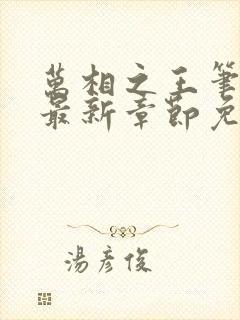 萬相之王筆
最新章節免
湯彥俊